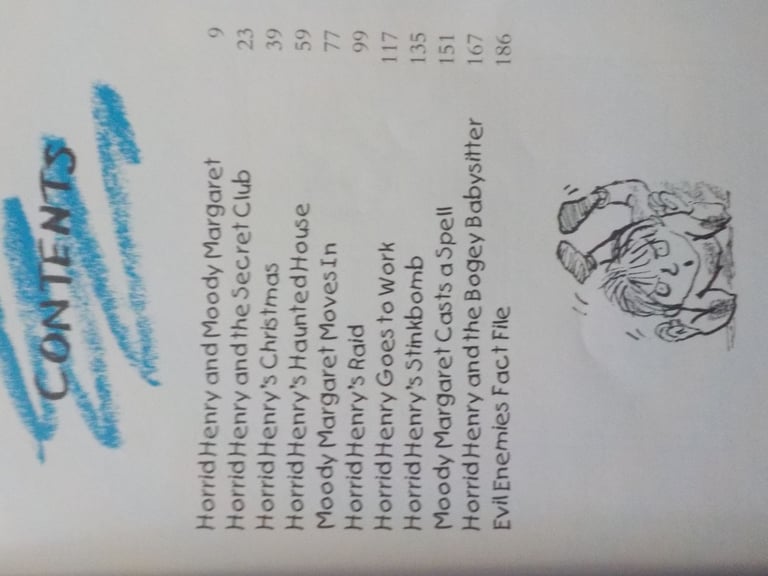 CONTENTS
Horrid Henry and Moody Margaret 9
Horrid Henry and the Secret Club 23
Horrid Henry's Christmas 39
Horrid Henry's Haunted House 59
Moody Margaret Moves In 77
Horrid Henry's Raid 99
Horrid Henry Goes to Work 117
Horrid Henry's Stinkbomb 135
Moody Margaret Casts a Spell 151
Horrid Henry and the Bogey Babysitter 167
Evil Enemies Fact File 186